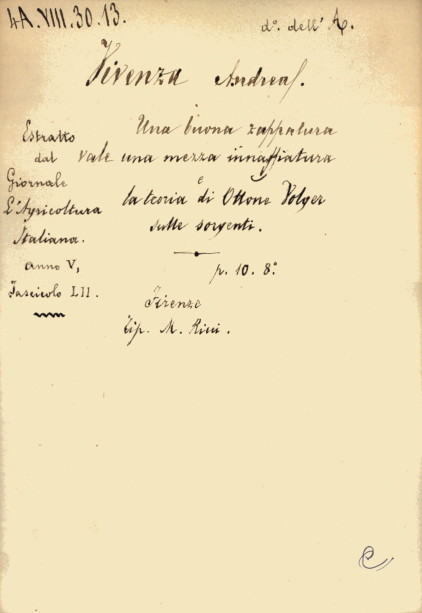 4A.VIII.30.13.
d°. dell' A.
Vivenza Andrea.
Una buona zappatura
vale una mezza innaffiatura
e
la teoria di Ottone Volger
sulle sorgenti.
p. 10. 8°.
Firenze
Tip. M. Ricci.
Estratto
dal
Giornale
L'Agricoltura
Italiana.
anno V,
Fascicolo LII.
C